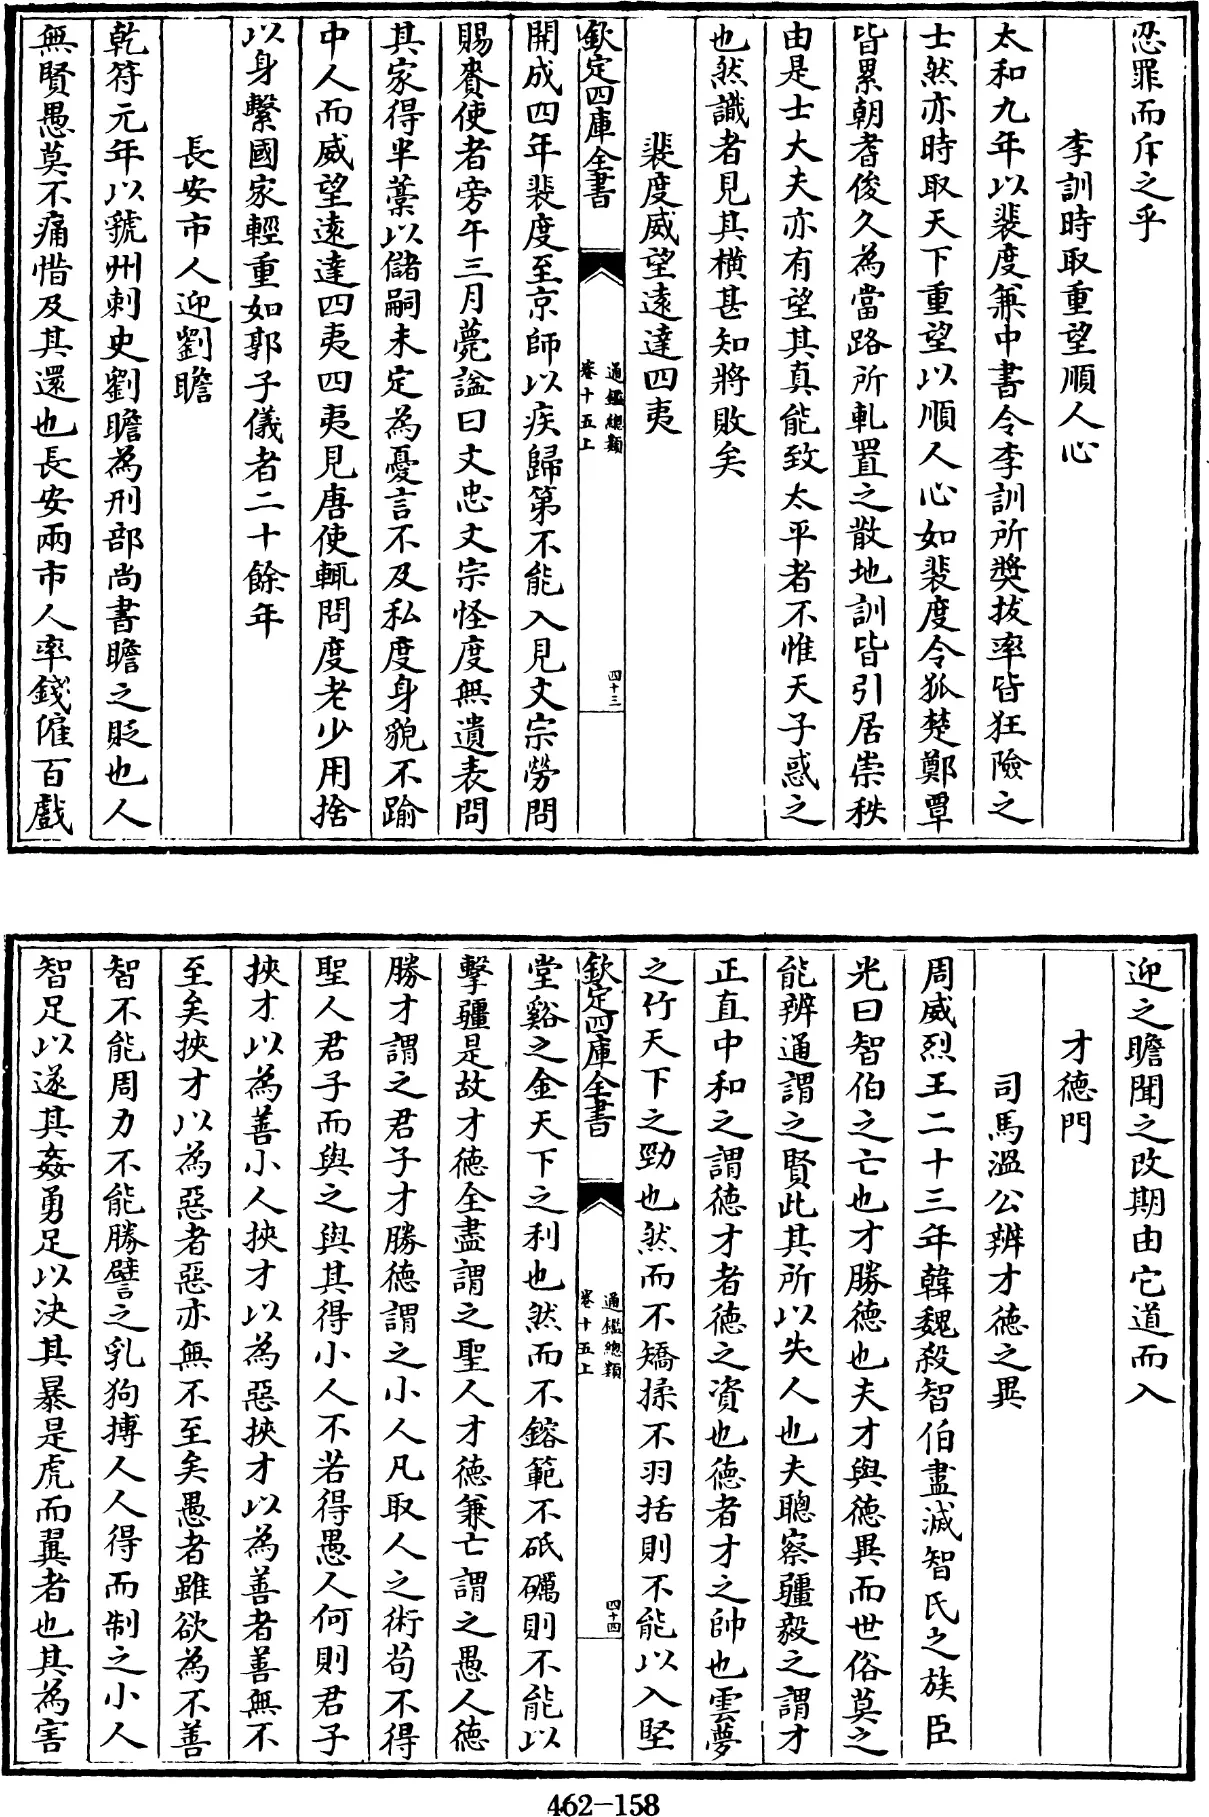 忍罪而斥之乎
李訓時取重望順人心
太和九年以裴度兼中書令李訓所奬拔率皆狂險之
士然亦時取天下重望以順人心如裴度令狐楚鄭覃
皆累朝耆俊久為當路所軋置之散地訓皆引居崇秩
由是士大夫亦有望其真能致太平者不惟天子惑之
也然識者見其横甚知將敗矣
裴度威望遠達四夷
欽定四庫全書
通鑑總類
卷十五上
四十三
開成四年裴度至京師以疾歸第不能入見文宗勞問
賜賚使者旁午三月薨諡曰文忠文宗怪度無遺表問
其家得半藁以儲嗣未定為憂言不及私度身貌不踰
中人而威望遠達四夷四夷見唐使輒問度老少用捨
以身繫國家輕重如郭子儀者二十餘年
長安市人迎劉瞻
乾符元年以虢州刺史劉瞻為刑部尚書瞻之貶也人
無賢愚莫不痛惜及其還也長安兩市人率錢雇百戲
迎之瞻聞之改期由它道而入
才德門
司馬溫公辨才德之異
周威烈王二十三年韓魏殺智伯盡滅智氏之族臣
光曰智伯之亡也才勝德也夫才與德異而世俗莫之
能辨通謂之賢此其所以失人也夫聰察疆毅之謂才
正直中和之謂德才者德之資也德者才之帥也雲夢
之竹天下之勁也然而不矯揉不羽括則不能以入堅
欽定四庫全書
通鑑總類
卷十五上
四十四
堂谿之金天下之利也然而不鎔範不砥礪則不能以
擊疆是故才德全盡謂之聖人才德兼亡謂之愚人德
勝才謂之君子才勝德謂之小人凡取人之術茍不得
聖人君子而與之與其得小人不若得愚人何則君子
挾才以為善小人挾才以為惡挾才以為善者善無不
至矣挾才以為惡者惡亦無不至矣愚者雖欲為不善
智不能周力不能勝譬之乳狗搏人人得而制之小人
智足以遂其姦勇足以決其暴是虎而翼者也其為害
462-158